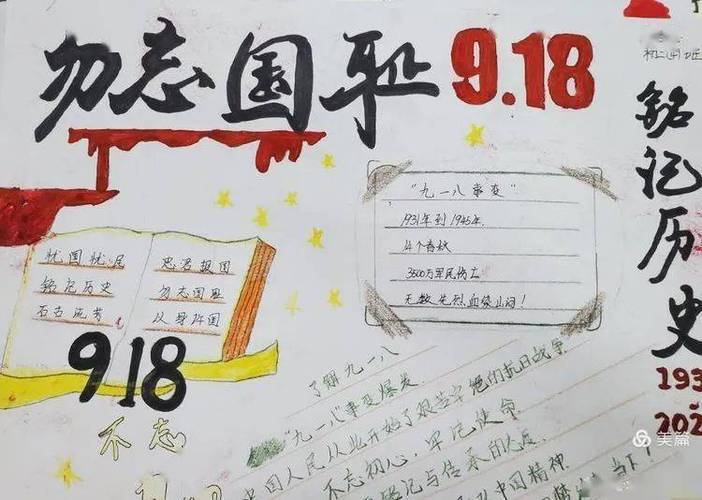 勿忘国耻 9.18
铭记历史
193
202
"九一八事变"
1931年到1945年
14个春秋
3500万军民伤亡
无数先烈血染山河!
忧国忧民
铭记历史
忠君报国
勿忘国耻
以身许国
918
不忘
了解九一八
"九一八"事变爆发
中国人民从此开始了
的抗日战争
不忘初心,牢记使命
铭记与传承的
中国精神
当下!
美篇